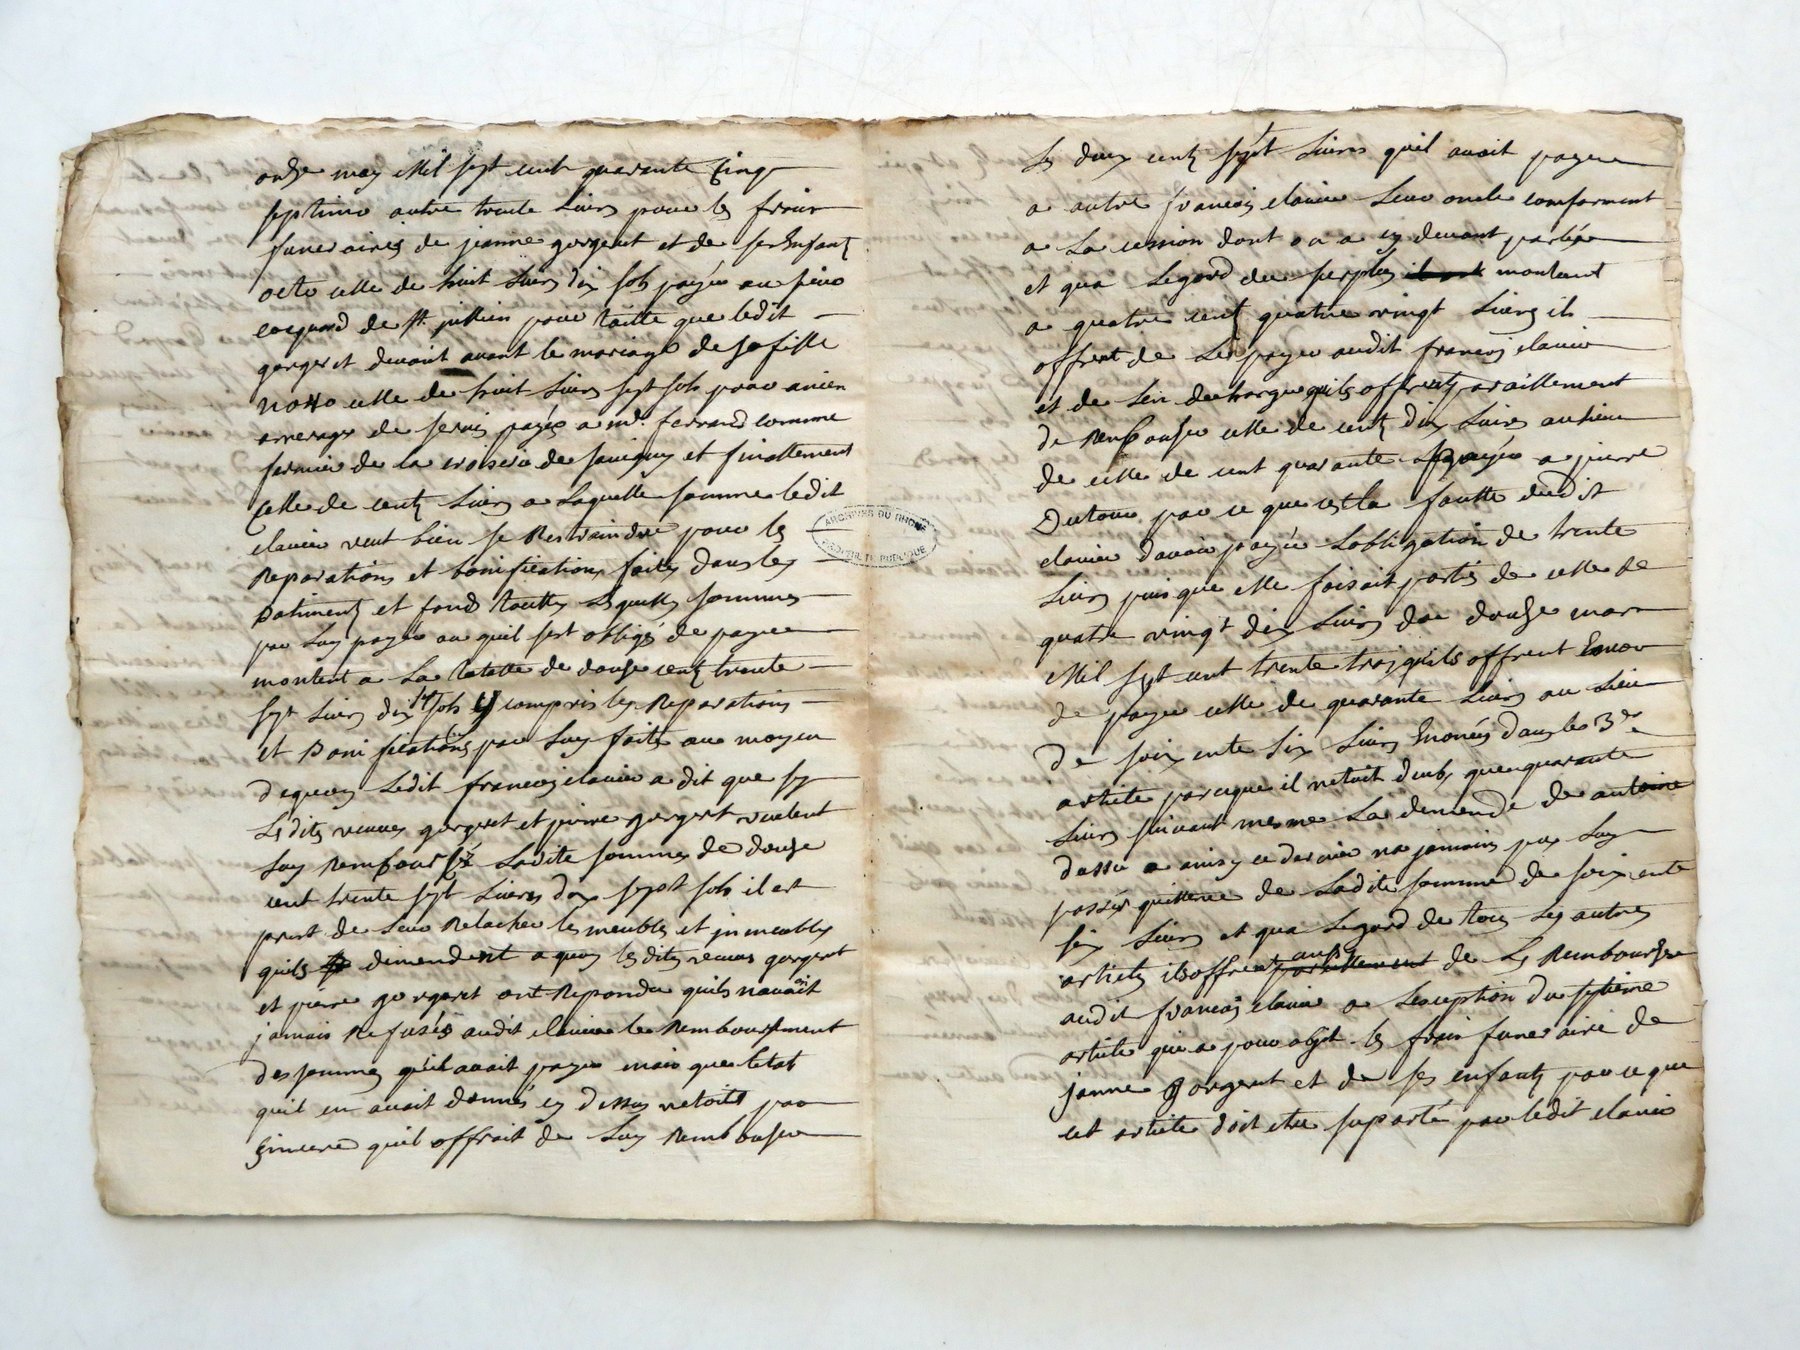 onze may Mil sept cent quarante Cinq
septimo autre trente Livres pour les fraix
funeraires de jeanne gorgeret et de ses Enfants
octo celle de huit Livres dix sols payée au sieur
de St. jullien pour taille que ledit
gorgeret devoit avant le mariage de sa fille
nono celle de huit Livres sept sols pour ancien
arrerage de servis payés a mr. ferrand comme
fermier de la de savigny et finallement
Celle de cents Livres a Laquelle somme ledit
clavier veut bien se Restraindre pour les
Reparations et bonifications faites dans les
Batiments et fonds touttes Lesquelles sommes
par Luy payés ou quil sest obligé de payer
montent a La totalle de douze cents trente
sept Livres dix sept sols y compris les Reparations
et Bonifications par Luy faites au moyen
dequoy Ledit francois clavier a dit que sy
Lesdits veuves gorgeret et pierre gorgeret veulent
Luy Rembourser Ladite somme de douze
cent trente sept Livres dix sept sols il est
prest de Leur Relacher les meubles et jmmeubles
quils demendent a quoy lesdits veuves gorgeret
et pierre gorgeret ont Repondu quils navoit
jamais Refusés audit clavier le Remboursement
des sommes quil avoit payés mais que letat
quil en avoit donnés cy dessus netoits pas
Sincere quil offroit de Luy Rembouser
Les deux cents sept Livres quil avoit payer
a autre francois clavier Leur oncle comforment
a La cession dont on a cy devant parlée
et qua Legard du surplus montant
a quatre cents quatre vingt Livres ils
offrent de Les payer audit francois clavier
et de Len decharger quils offrent paraillement
de Rembouser celle de cents dix Livres au lieu
de celle de cent quarante payée a pierre
Dutour par ce que cest la fautte dudit
clavier davoir payée Lobligation de trente
Livres puis que elle faisoit partis de celle de
quatre vingt dix Livres du douze mars
Mil sept cent trente trois quils offrent Encor
de payer celle de quarante Livres au Lieu
de soixente six Livres Enoncés dans le 3e.
article parceque il netoit deub que quarante
Livres suivant mesme La demende de antoine
dassu a ainsy ce dernier na jamais pas Luy
passér quittence de Ladite somme de soixente
six Livres et qua Legard de tous Les autres
articles ils offrent aussy de Les Rembourser
audit francois clavier a Lexception du septieme
article qui a pour objet les frais funeraire de
janne gorgeret et de ses enfants par ce que
cet article doit etre suporté par ledit clavier
ARCHIVES DU RHONE
PROPRIETE PUBLIQUE